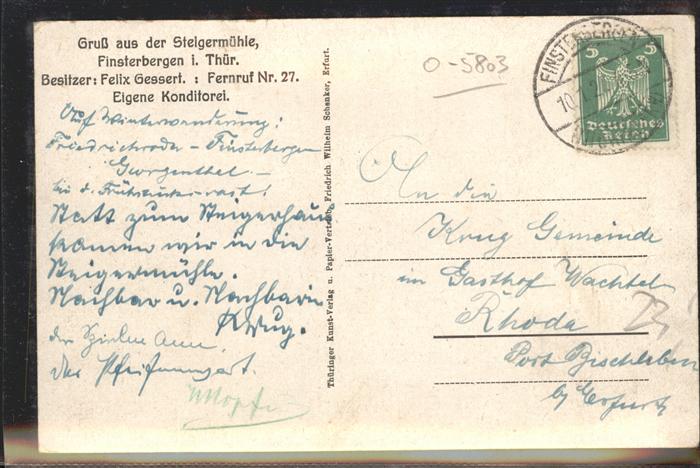 Gruß aus der Steigermühle,
Finsterbergen i. Thür.
Besitzer: Felix Gessert. : Fernruf Nr. 27.
Eigene Konditorei.
Auf Winterwanderung:
Friedrichroda – Finsterbergen
Georgenthal. –
bei d. Frühstücksrast!
Statt zum Steigerhaus
kamen wir in die
Steigermühle.
Nachbar u. Nachbarin
Krug.
der
das
Thüringer Kunst-Verlag u. Papier-Vertrieb, Friedrich Wilhelm Schenker, Erfurt.
0-5803
FINSTERBERGEN
10.
5 5
Deutsches
Reich
An die
Krug Gemeinde
im Gasthof Wachtel
Rhoda
Post Bischleben
by Erfurt